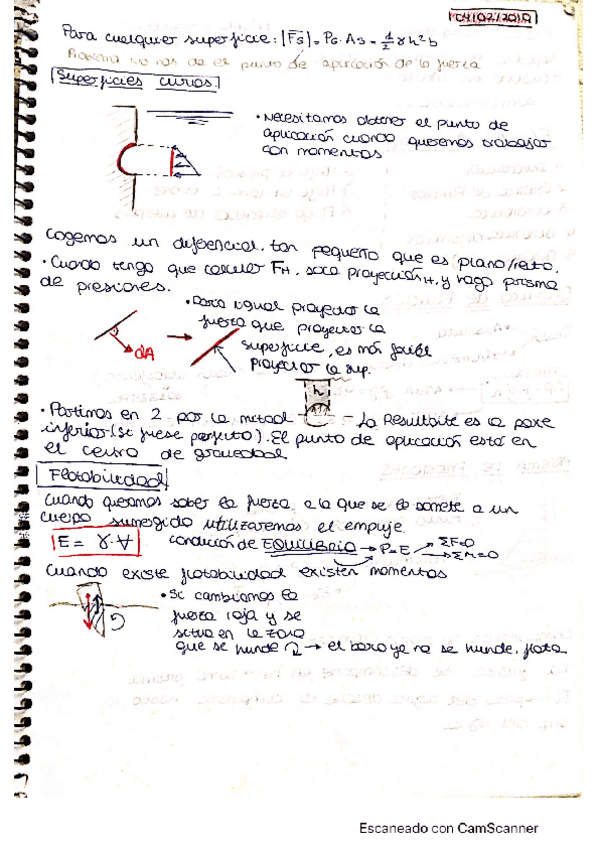 04/02/2019
Para cualquier superficie: |Fs| = PG · As = 1/2 γ h² b
Problema no nos da el punto de aplicación de la fuerza
Superficies curvas.
• Necesitamos obtener el punto de
aplicación cuando queremos trabajar
con momentos
Cogemos un diferencial, tan pequeño que es plano/recto.
• Cuando tengo que calcular FH, saco proyección H, y hago prisma
de presiones.
• Da igual proyectar la
fuerza que proyectar la
superficie, es más fácil
proyectar la sup.
dA
h
• Partimos en 2 por la mitad - La Resultante es la parte
inferior (si fuese perfecto). El punto de aplicación está en
el centro de gravedad
Flotabilidad
Cuando queramos saber la fuerza a la que se le somete a un
cuerpo sumergido utilizaremos el empuje.
E = γ · ∀ condición de EQUILIBRIO → P = E → ΣF=0
→ ΣM=0
Cuando existe flotabilidad existen momentos
• Si cambiamos la
fuerza roja y se
situa en la zona
que se hunde → el barco ya no se hunde, flota
Escaneado con CamScanner